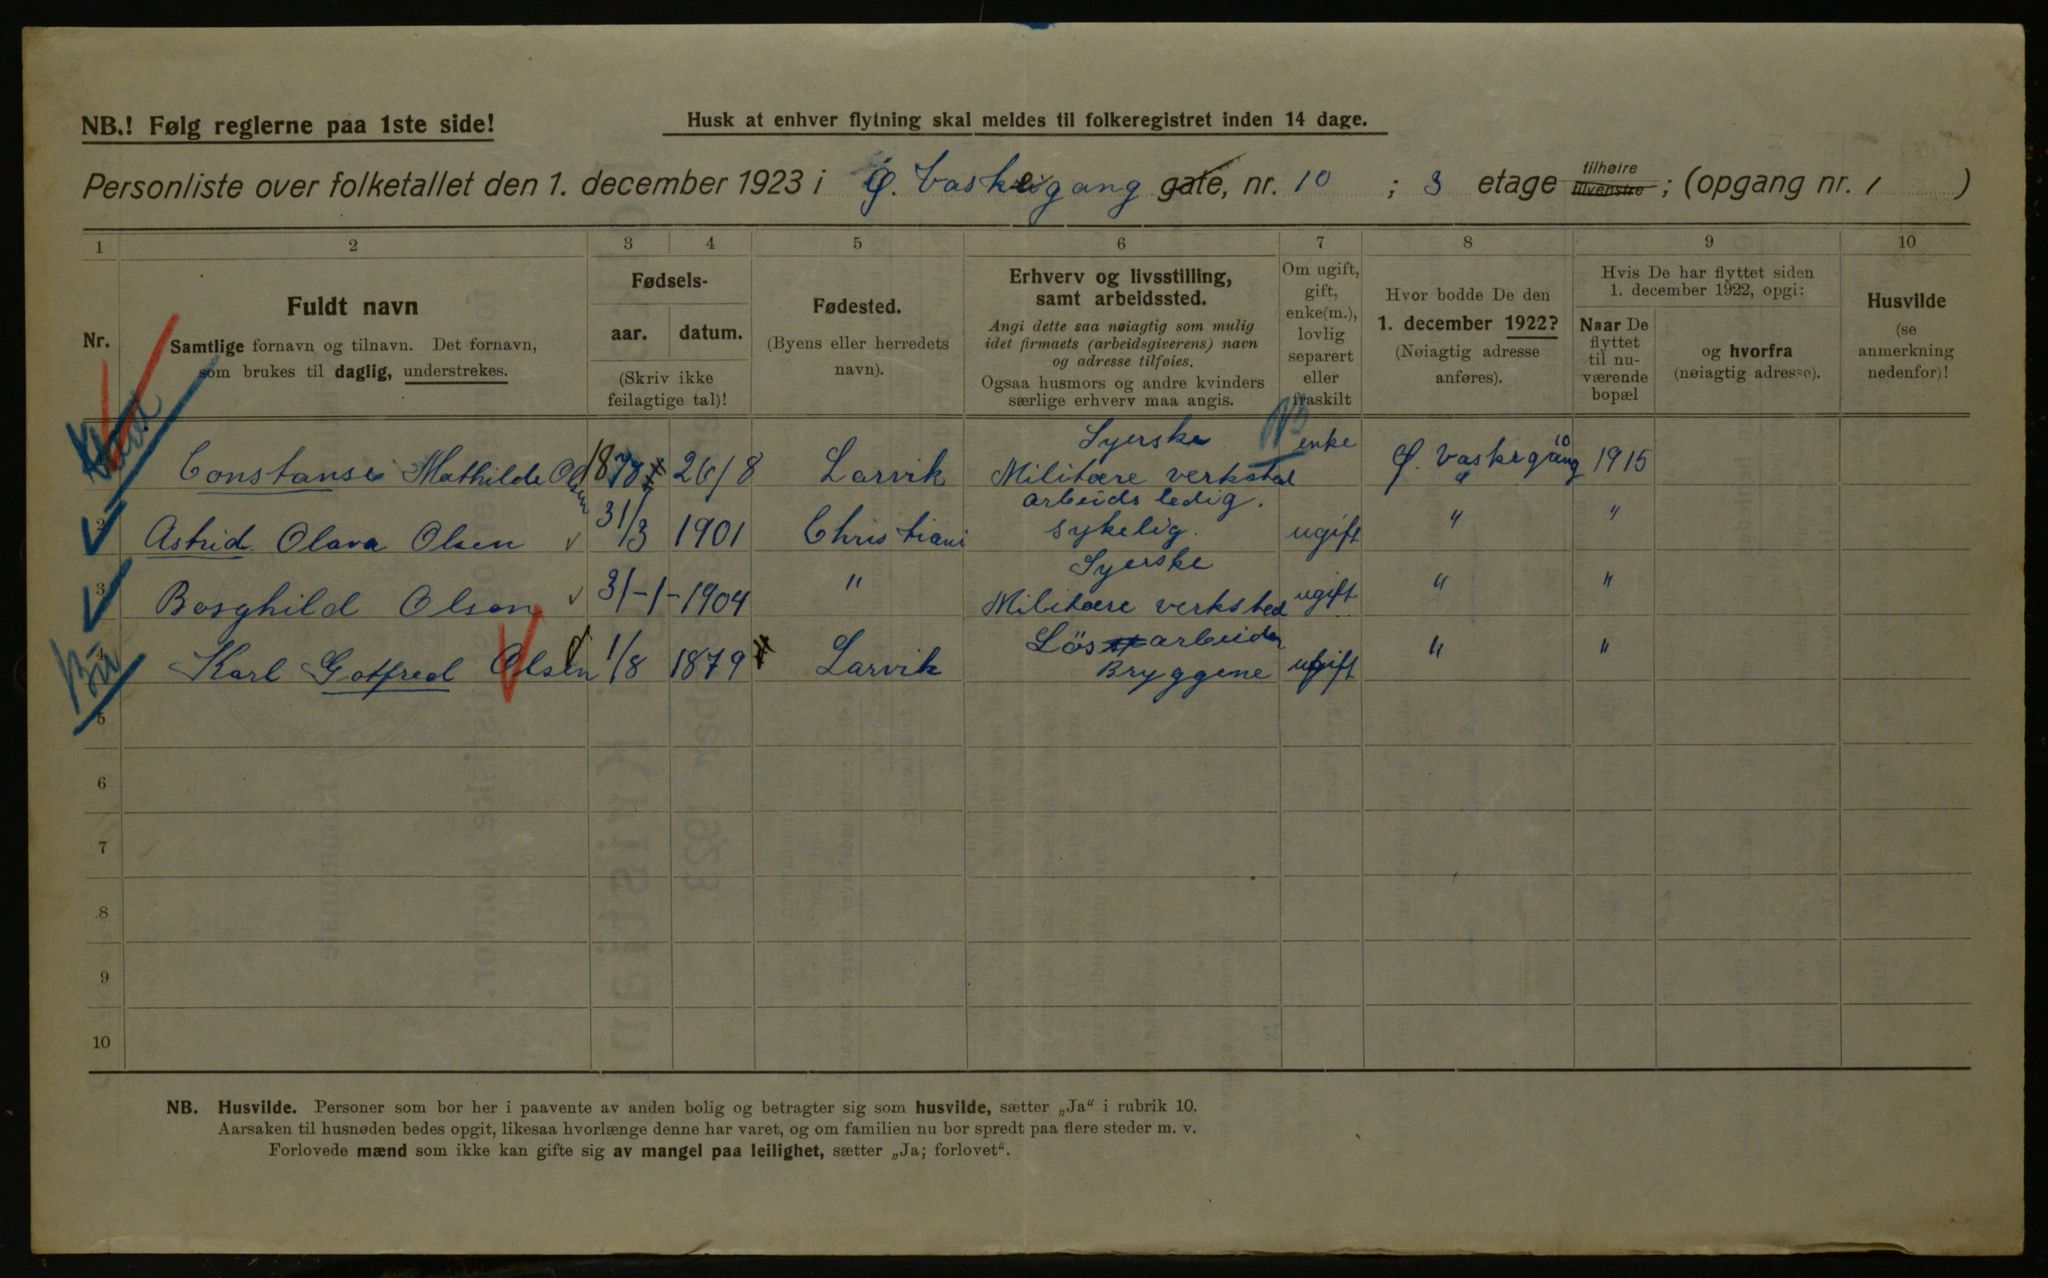 NB.! Følg reglerne paa 1ste side!
Husk at enhver flytning skal meldes til folkeregistret inden 14 dage.
Personliste over folketallet den 1. december 1923 i Ø. Vaskegang gate, nr. 10 ; 3 etage tilhøire tilvenstre ; (opgang nr. 1 )
1 2 3 4 5 6 7 8 9 10
Nr.
Fuldt navn
Samtlige fornavn og tilnavn. Det fornavn,
som brukes til daglig, understrekes.
Fødsels-
aar. datum.
(Skriv ikke
feilagtige tal)!
Fødested.
(Byens eller herredets
navn).
Erhverv og livsstilling,
samt arbeidssted.
Angi dette saa nøiagtig som mulig
idet firmaets (arbeidsgiverens) navn
og adresse tilføies.
Ogsaa husmors og andre kvinders
særlige erhverv maa angis.
Om ugift,
gift,
enke(m.),
lovlig
separert
eller
fraskilt
Hvor bodde De den
1. december 1922?
(Nøiagtig adresse
anføres).
Hvis De har flyttet siden
1. december 1922, opgi:
Naar De
flyttet
til nu-
værende
bopæl
og hvorfra
(nøiagtig adresse).
Husvilde
(se
anmerkning
nedenfor)!
Constanse Mathilde Olsen 1878 26/8 Larvik Syerske Militære verksted enke Ø. Vaskegang 10 1915
2 Astrid Olava Olsen 31/3 1901 Christiani arbeids ledig. sykelig. ugift " "
3 Borghild Olsen 31-1-1904 " Syerske Militære verksted ugift " "
4 Karl Gotfred Olsen 1/8 1879 Larvik Løsarbeider Bryggene ugift " "
5
6
7
8
9
10
NB. Husvilde. Personer som bor her i paavente av anden bolig og betragter sig som husvilde, sætter „Ja“ i rubrik 10.
Aarsaken til husnøden bedes opgit, likesaa hvorlænge denne har varet, og om familien nu bor spredt paa flere steder m. v.
Forlovede mænd som ikke kan gifte sig av mangel paa leilighet, sætter „Ja; forlovet“.